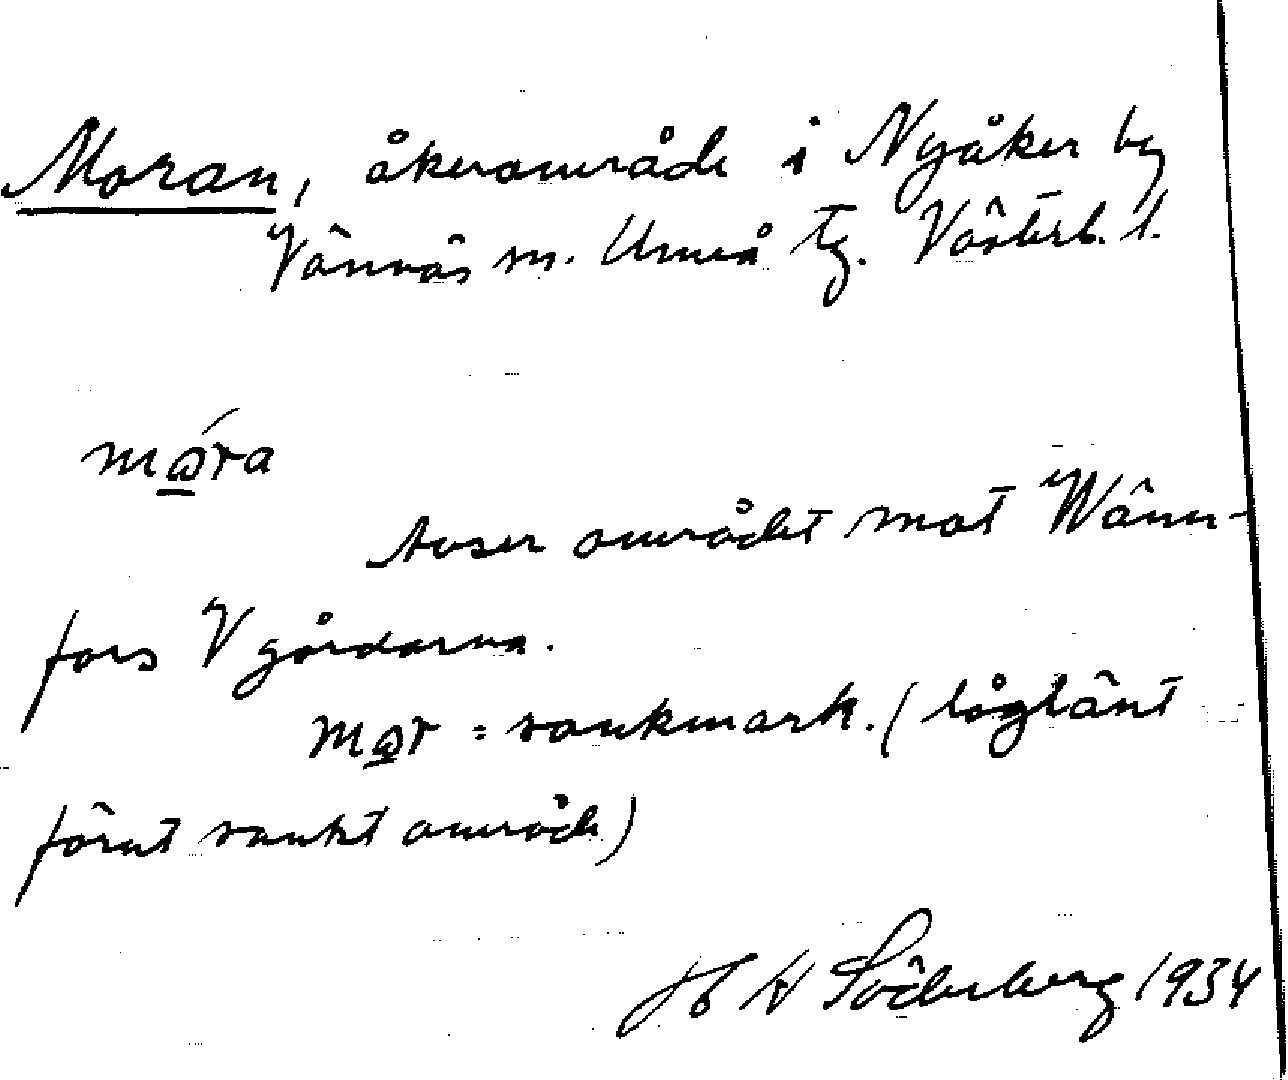 Moran, åkerområde i Nyåker by
Vännäs sn. Umeå tg. Västerb. l.
mǫ́ra
Avser området mot Wänn-
fors V gårdarna.
mǫr = sankmark. (låglänt
förut sankt område)
H W Söderberg 1934